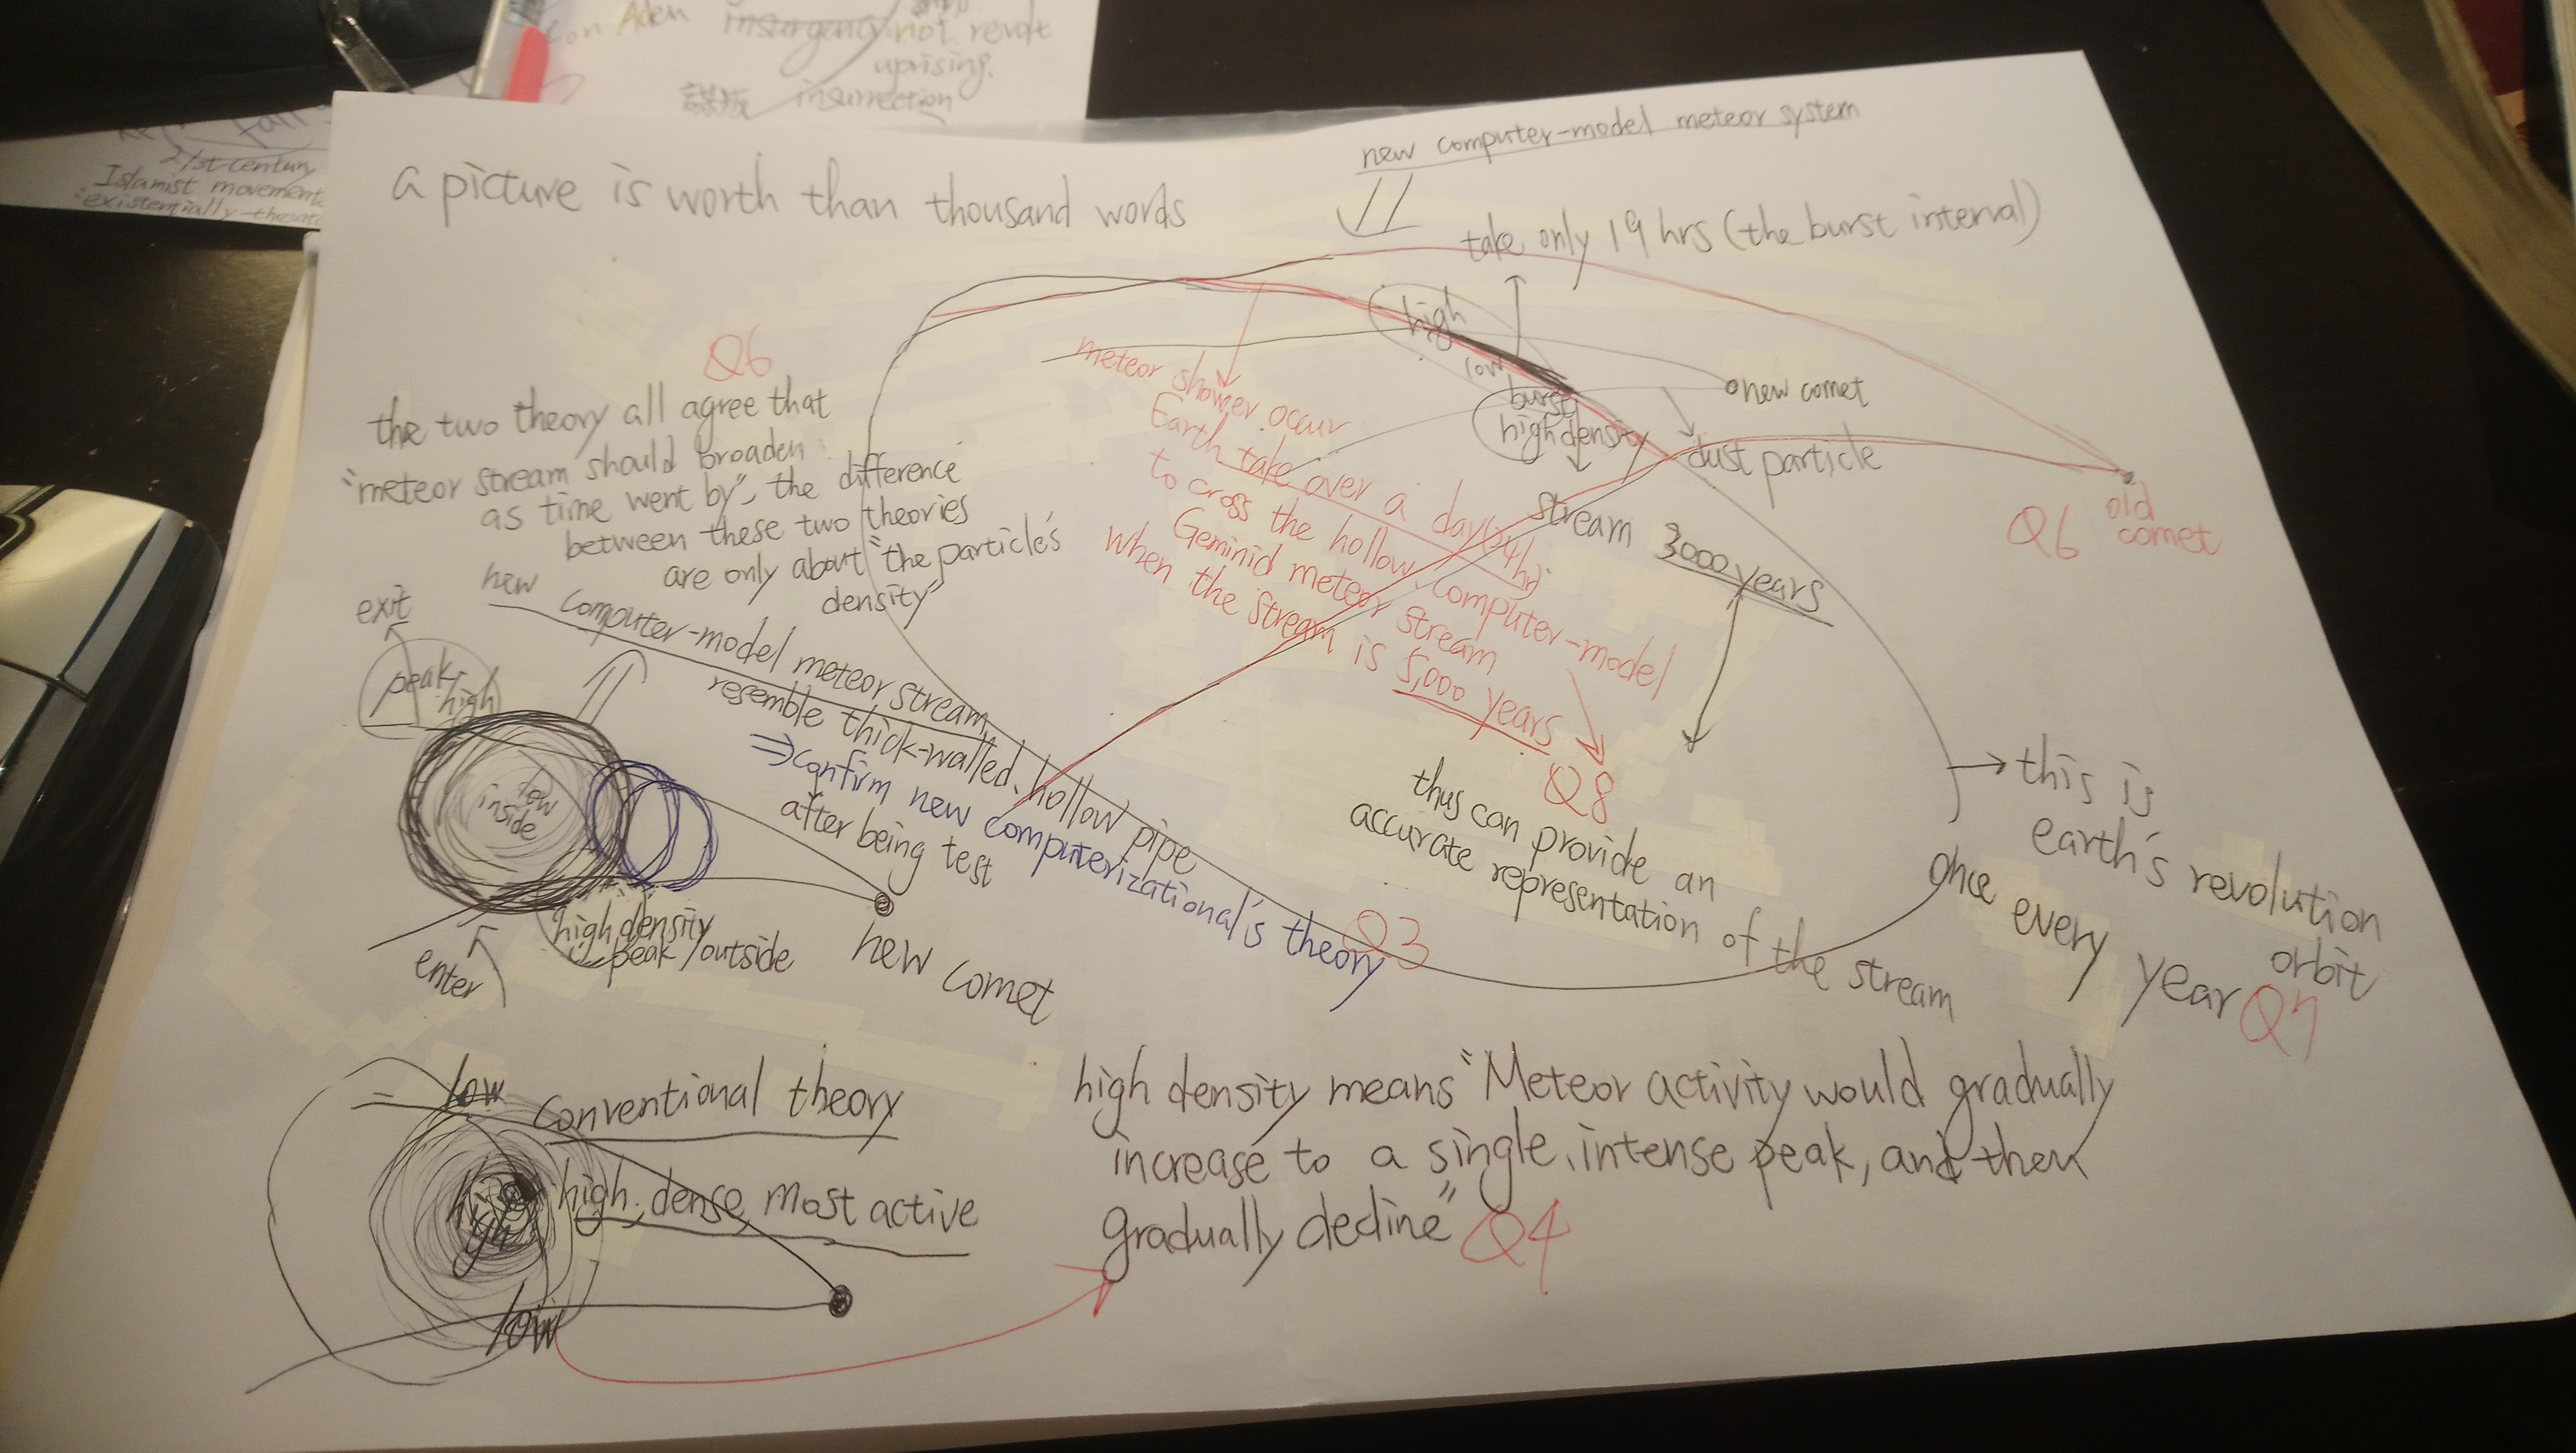 Aden insurgency not revolt
uprising.
insurrection
21st century
Islamist movement
existentially threat
new computer-model meteor system
a picture is worth than thousand words
take only 19 hrs (the burst interval)
high
low
burst
high density
new comet
dust particle
old
comet
Q6
stream 3000 years
meteor shower occur
Earth take over a day(24hr)
to cross the hollow, computer-model
Geminid meteor stream
when the stream is 5,000 years
Q8
Q6
the two theory all agree that
"meteor stream should broaden
as time went by", the difference
between these two theories
are only about "the particle's
density"
new computer-model meteor stream
resemble thick-walled, hollow pipe
⇒confirm new computerizational's theory
after being test
Q3
exit
peak high
low
inside
high density
peak/outside
enter
new comet
thus can provide an
accurate representation of the stream
→ this is
earth's revolution
orbit
once every year Q7
low
conventional theory
high
high, dense, most active
low
high density means "Meteor activity would gradually
increase to a single, intense peak, and then
gradually decline" Q4